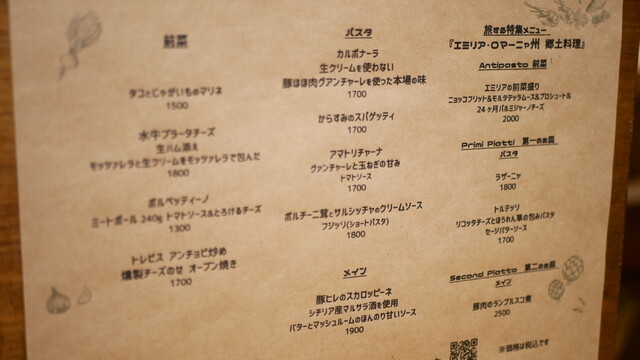 前菜
タコとじゃがいものマリネ
1500
水牛ブラータチーズ
生ハム添え
モッツァレラと生クリームをモッツァレラで包んだ
1800
ポルペッティーノ
ミートボール 240g トマトソース&とろけるチーズ
1300
トレビス アンチョビ炒め
燻製チーズのせ オーブン焼き
1700
パスタ
カルボナーラ
生クリームを使わない
豚ほほ肉グアンチャーレを使った本場の味
1700
からすみのスパゲッティ
1700
アマトリチャーナ
グァンチャーレと玉ねぎの甘み
トマトソース
1700
ポルチーニ茸とサルシッチャのクリームソース
フジッリ(ショートパスタ)
1800
メイン
豚ヒレのスカロッピーネ
シチリア産マルサラ酒を使用
バターとマッシュルームのほんのり甘いソース
1900
旅する特集メニュー
『エミリア・ロマーニャ州 郷土料理』
Antipasto 前菜
エミリアの前菜盛り
ニョッコフリット&モルタデッラムース&プロシュート&
24ヶ月パルミジャーノチーズ
2000
Primi Piatti 第一のお皿
パスタ
ラザーニャ
1800
トルテッリ
リコッタチーズとほうれん草の包みパスタ
セージバターソース
1700
Second Piatto 第二のお皿
メイン
豚肉のランブルスコ煮
2500
※価格は税込です